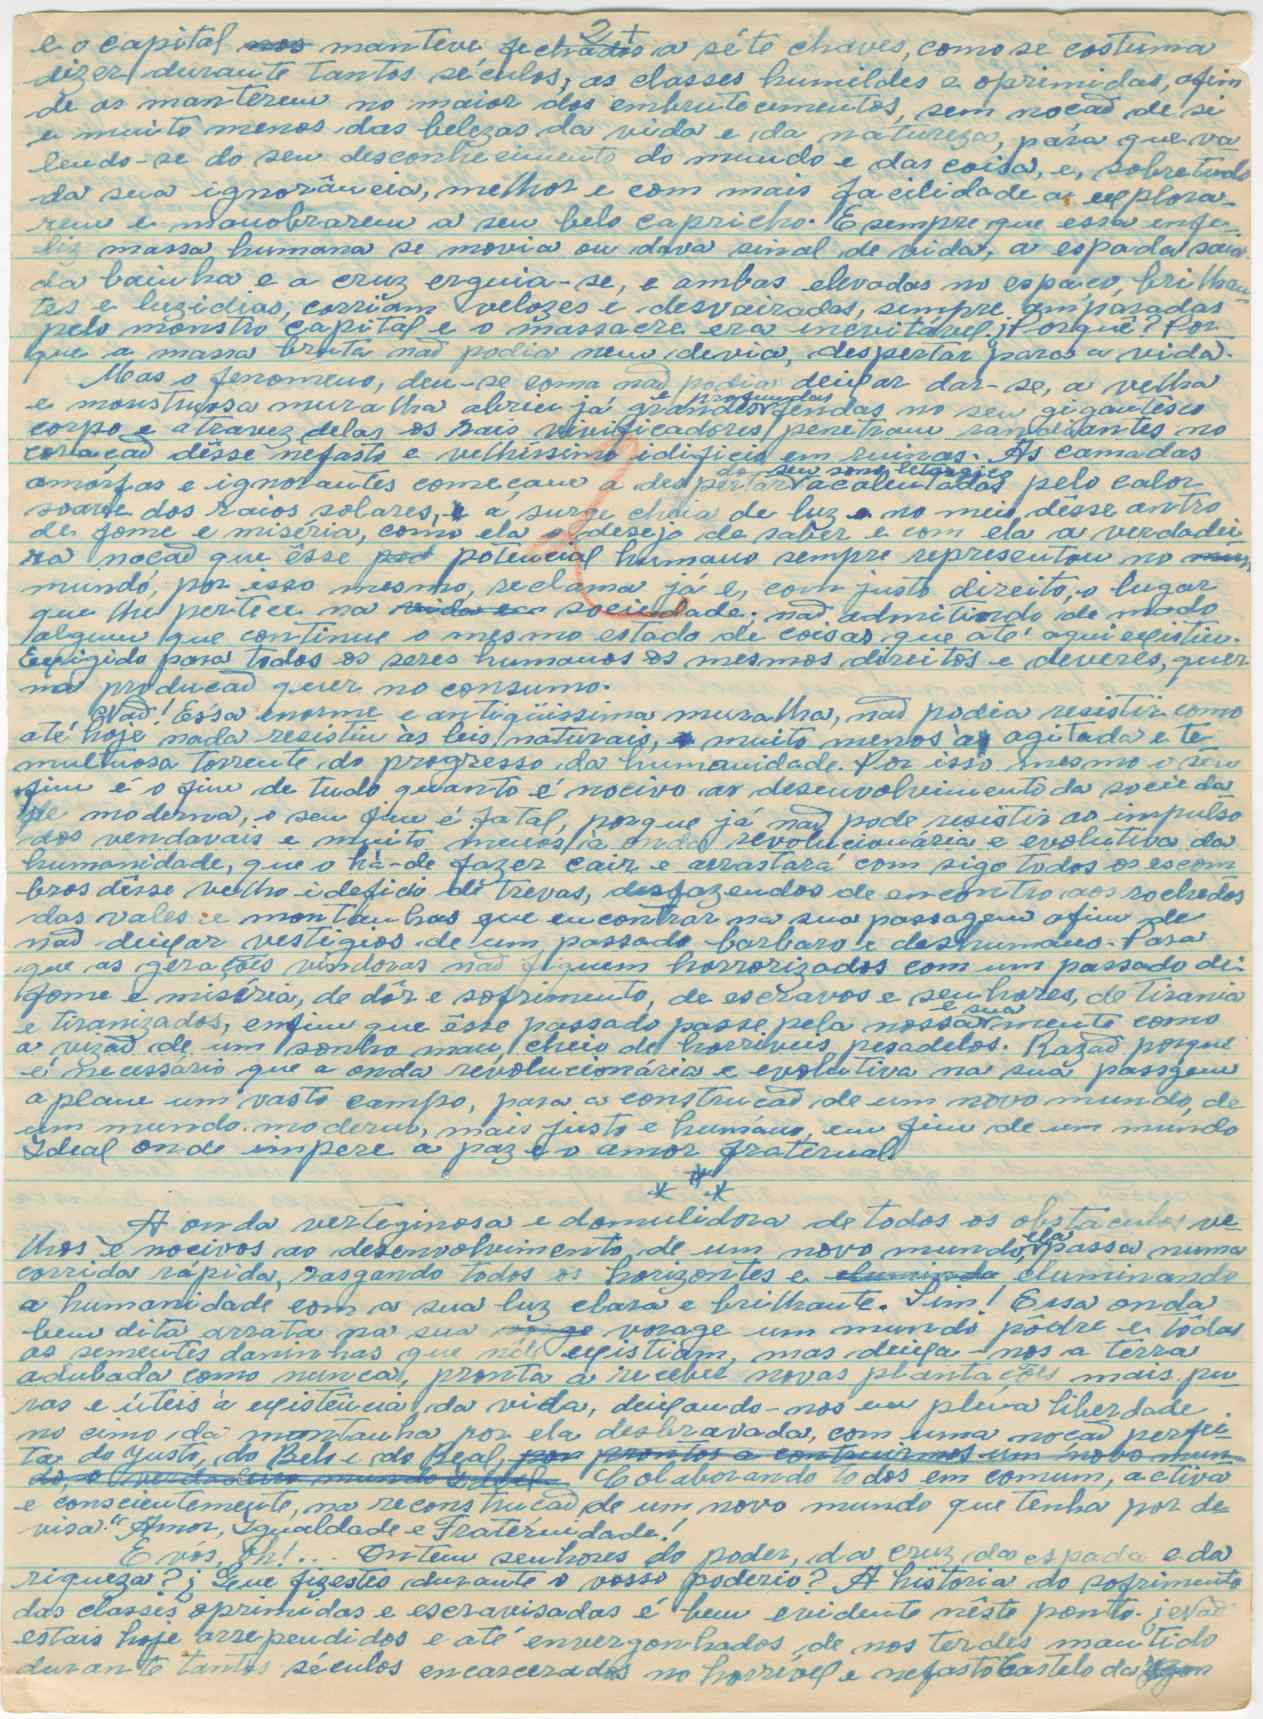 2+
e o capital nos manteve fechados a séte chaves, como se costuma
dizer durante tantos séculos, as classes humildes e oprimidas, afim
de as manterem no maior dos embrutecimentos, sem noção de si
e muito menos das belezas da vida e da natureza, pára que va-
lendo-se do seu desconhecimento do mundo e das coisa, e, sobretudo
da sua ignorância, melhor e com mais facilidade as explora-
rem e manobrarem a seu belo capricho. E sempre que essa infe-
liz massa humana se movia ou dava sinal de vida, a espada saia
da bainha e a cruz erguia-se, e ambas elevadas no espaço, brilhan-
tes e luzidias, corriam velozes e desvairadas, sempre amparadas
pelo monstro capital e o massacre era inevitavel; Porquê? Por-
que a massa bruta não podia nem devia, despertar para a vida.
Mas o fenomeno, deu-se coma não podia deixar dar-se, a velha
e monstruosa muralha abriu já grandes e profundas fendas no seu gigantêsco
corpo e atravez delas os rais vivificadores penetram radiantes no
coração dêsse nefasto e velhissimo idificio em ruinas. As camadas
amórfas e ignorantes começam a despertar do seu sono letargico acalentadas pelo calor
soave dos raios solares, e a surge cheia de luz e no meio dêsse antro
de fome e miséria, como ela o desejo de saber e com ela a verdadei
ra noção que êsse pot potencial humano sempre representou no mun,
mundo, por isso mesmo, reclama já e, com justo direito, o lugar
que lhe pertece na vida em sociedade; não admitindo de modo
algum que continue o mesmo estado de coisas que até aqui existiu.
Exigido para todos os seres humanos os mesmos direitos e deveres, quer
na produção quer no consumo.
Não! Essa enorme e antigüissima muralha, não podia resistir como
até hoje nada resistiu as leis naturais, e muito menos à agitada e te
multuosa torrente do progresso da humanidade. Por isso mesmo o seu
fim é o fim de tudo quanto é nocivo ao desenvolvimento da socieda
de moderna, o seu fim é fatal, porque já não pode resistir ao impulso
dos vendavais e muito menos à onda revolucionária e evolutiva da
humanidade, que o há-de fazer cair e arrastará com sigo todos os escom
bros dêsse velho ideficio di trevas, desfazendos de encontro aos rochedos
das vales e montanhas que encontrar na sua passagem afim de
não deixar vestigios de um passado barbaro e deshumano. Para
que as gerações vindoras não fiquem horrorizados com um passado di-
fome e miséria, de dôr e sofrimento, de escravos e senhores, de tirania
e tiranizados, enfim que êsse passado passe pela nossa e sua mente como
a vizão de um sonho mau cheio de horriveis pesadelos. Razão porque
é necessário que a onda revolucionária e evolutiva na sua passgem
aplane um vasto campo, para a construção de um novo mundo, de
um mundo moderno, mais justo e humano, em fim de um mundo
Ideal onde impere a paz e o amor fraternal.
* * *
A onda vertiginosa e domulidora de todos os obstaculos ve-
lhos e nocivos ao desenvolvimento, de um novo mundo, ela passa numa
corrida rápida, rasgando todos os horizontes e eluminando eluminando
a humanidade com a sua luz clara e brilhante. Sim! Essa onda
bem dita arrata na sua vorage um mundo pôdre e tôdas
as sementes daninhas que nele existiam, mas deixa-nos a terra
adubada como nunca, pronta a receber novas plantações mais pu-
ras e úteis à existência da vida, deixando-nos em plena liberdade
no cimo da montanha por ela desbravada, com uma noção perfei-
ta do Justo, do Belo e do Real, por prontos a contruirmos um novo mun-
do, o verdadeiro mundo Ideal Colaborando todos em comum, activa
e conscientemente, na reconstrução de um novo mundo que tenha por de-
visa "Amor, Igualdade e Fraternidade!
E vós, Oh!... Ontem senhores do poder, da cruz da espada e da
riqueza? ¡ Que fizestes durante o vosso poderio? A história do sofrimento
das classes oprimidas e escravisadas é bem evidente nêste ponto. ¡ Não
estais hoje arrependidos e até envergonhados de nos terdes mantido
durante tantos séculos encarcerados no horrível e nefasto Castelo da